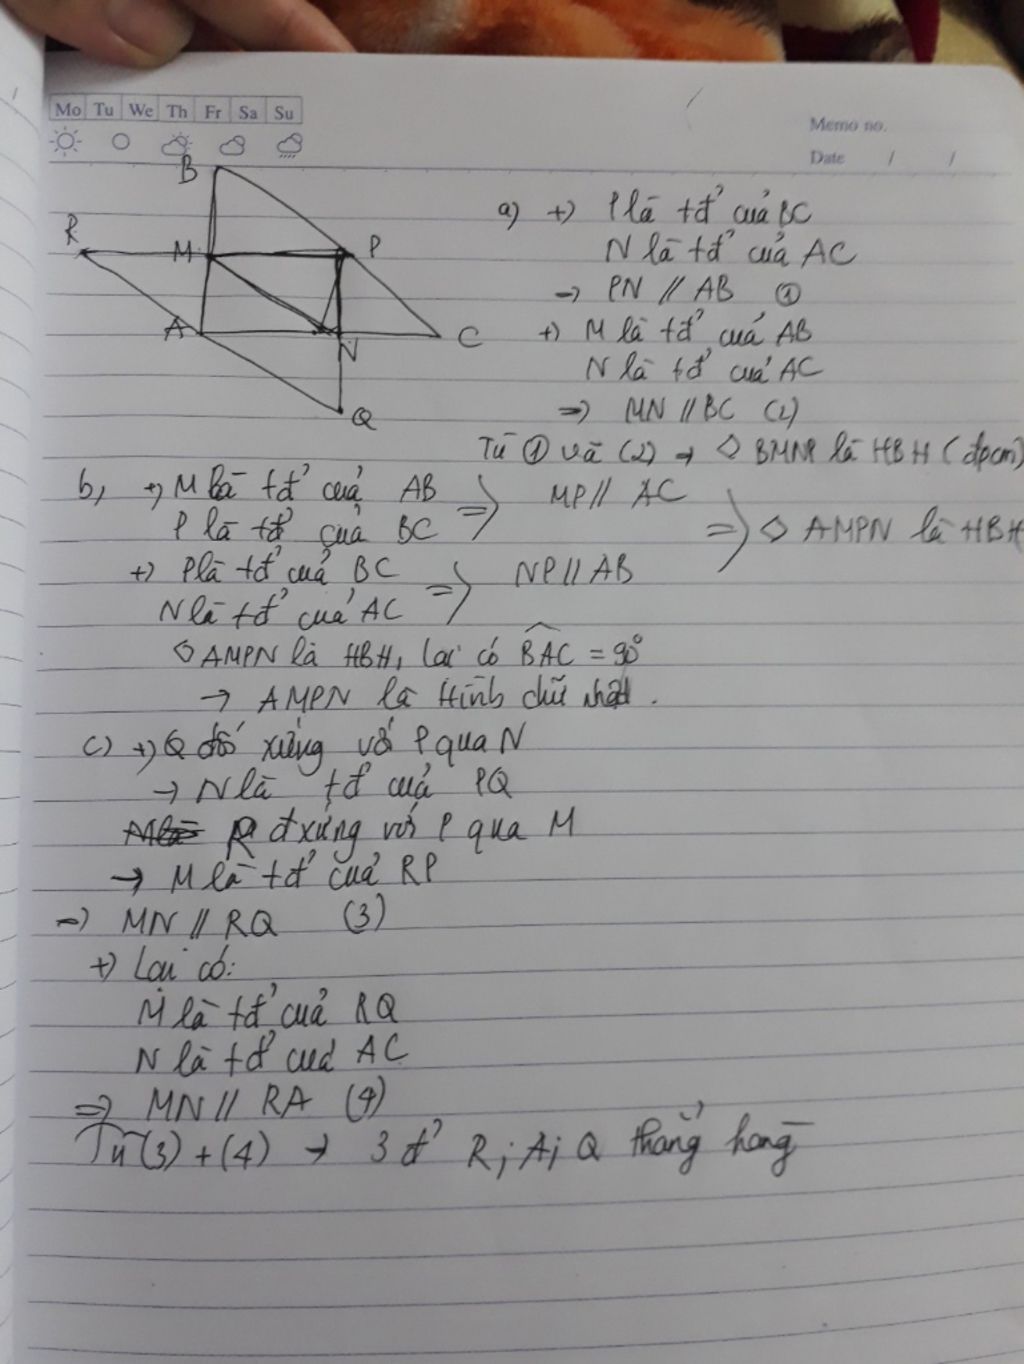 Mo Tu We Th Fr Sa Su
Memo no.
Date / /
B
R
M
P
A
N
C
Q
a) +) P là tđ' của BC
N là tđ' của AC
→ PN // AB ①
+) M là tđ' của AB
N là tđ' của AC
=> MN // BC (2)
Từ ① và (2) → ◇ BMNP là HBH (đpcm)
b, +) M là tđ' của AB => MP // AC
P là tđ' của BC => ◇ AMPN là HBH
+) P là tđ' của BC => NP // AB
N là tđ' của AC
◇ AMPN là HBH, lại có BAC = 90°
→ AMPN là Hình chữ nhật.
c) +) Q đối xứng với P qua N
→ N là tđ' của PQ
R đ xứng với P qua M
→ M là tđ' của RP
=> MN // RQ (3)
+) Lại có:
M là tđ' của RQ
N là tđ' của AC
=> MN // RA (4)
Từ (3) + (4) → 3 đ' R; A; Q thẳng hàng